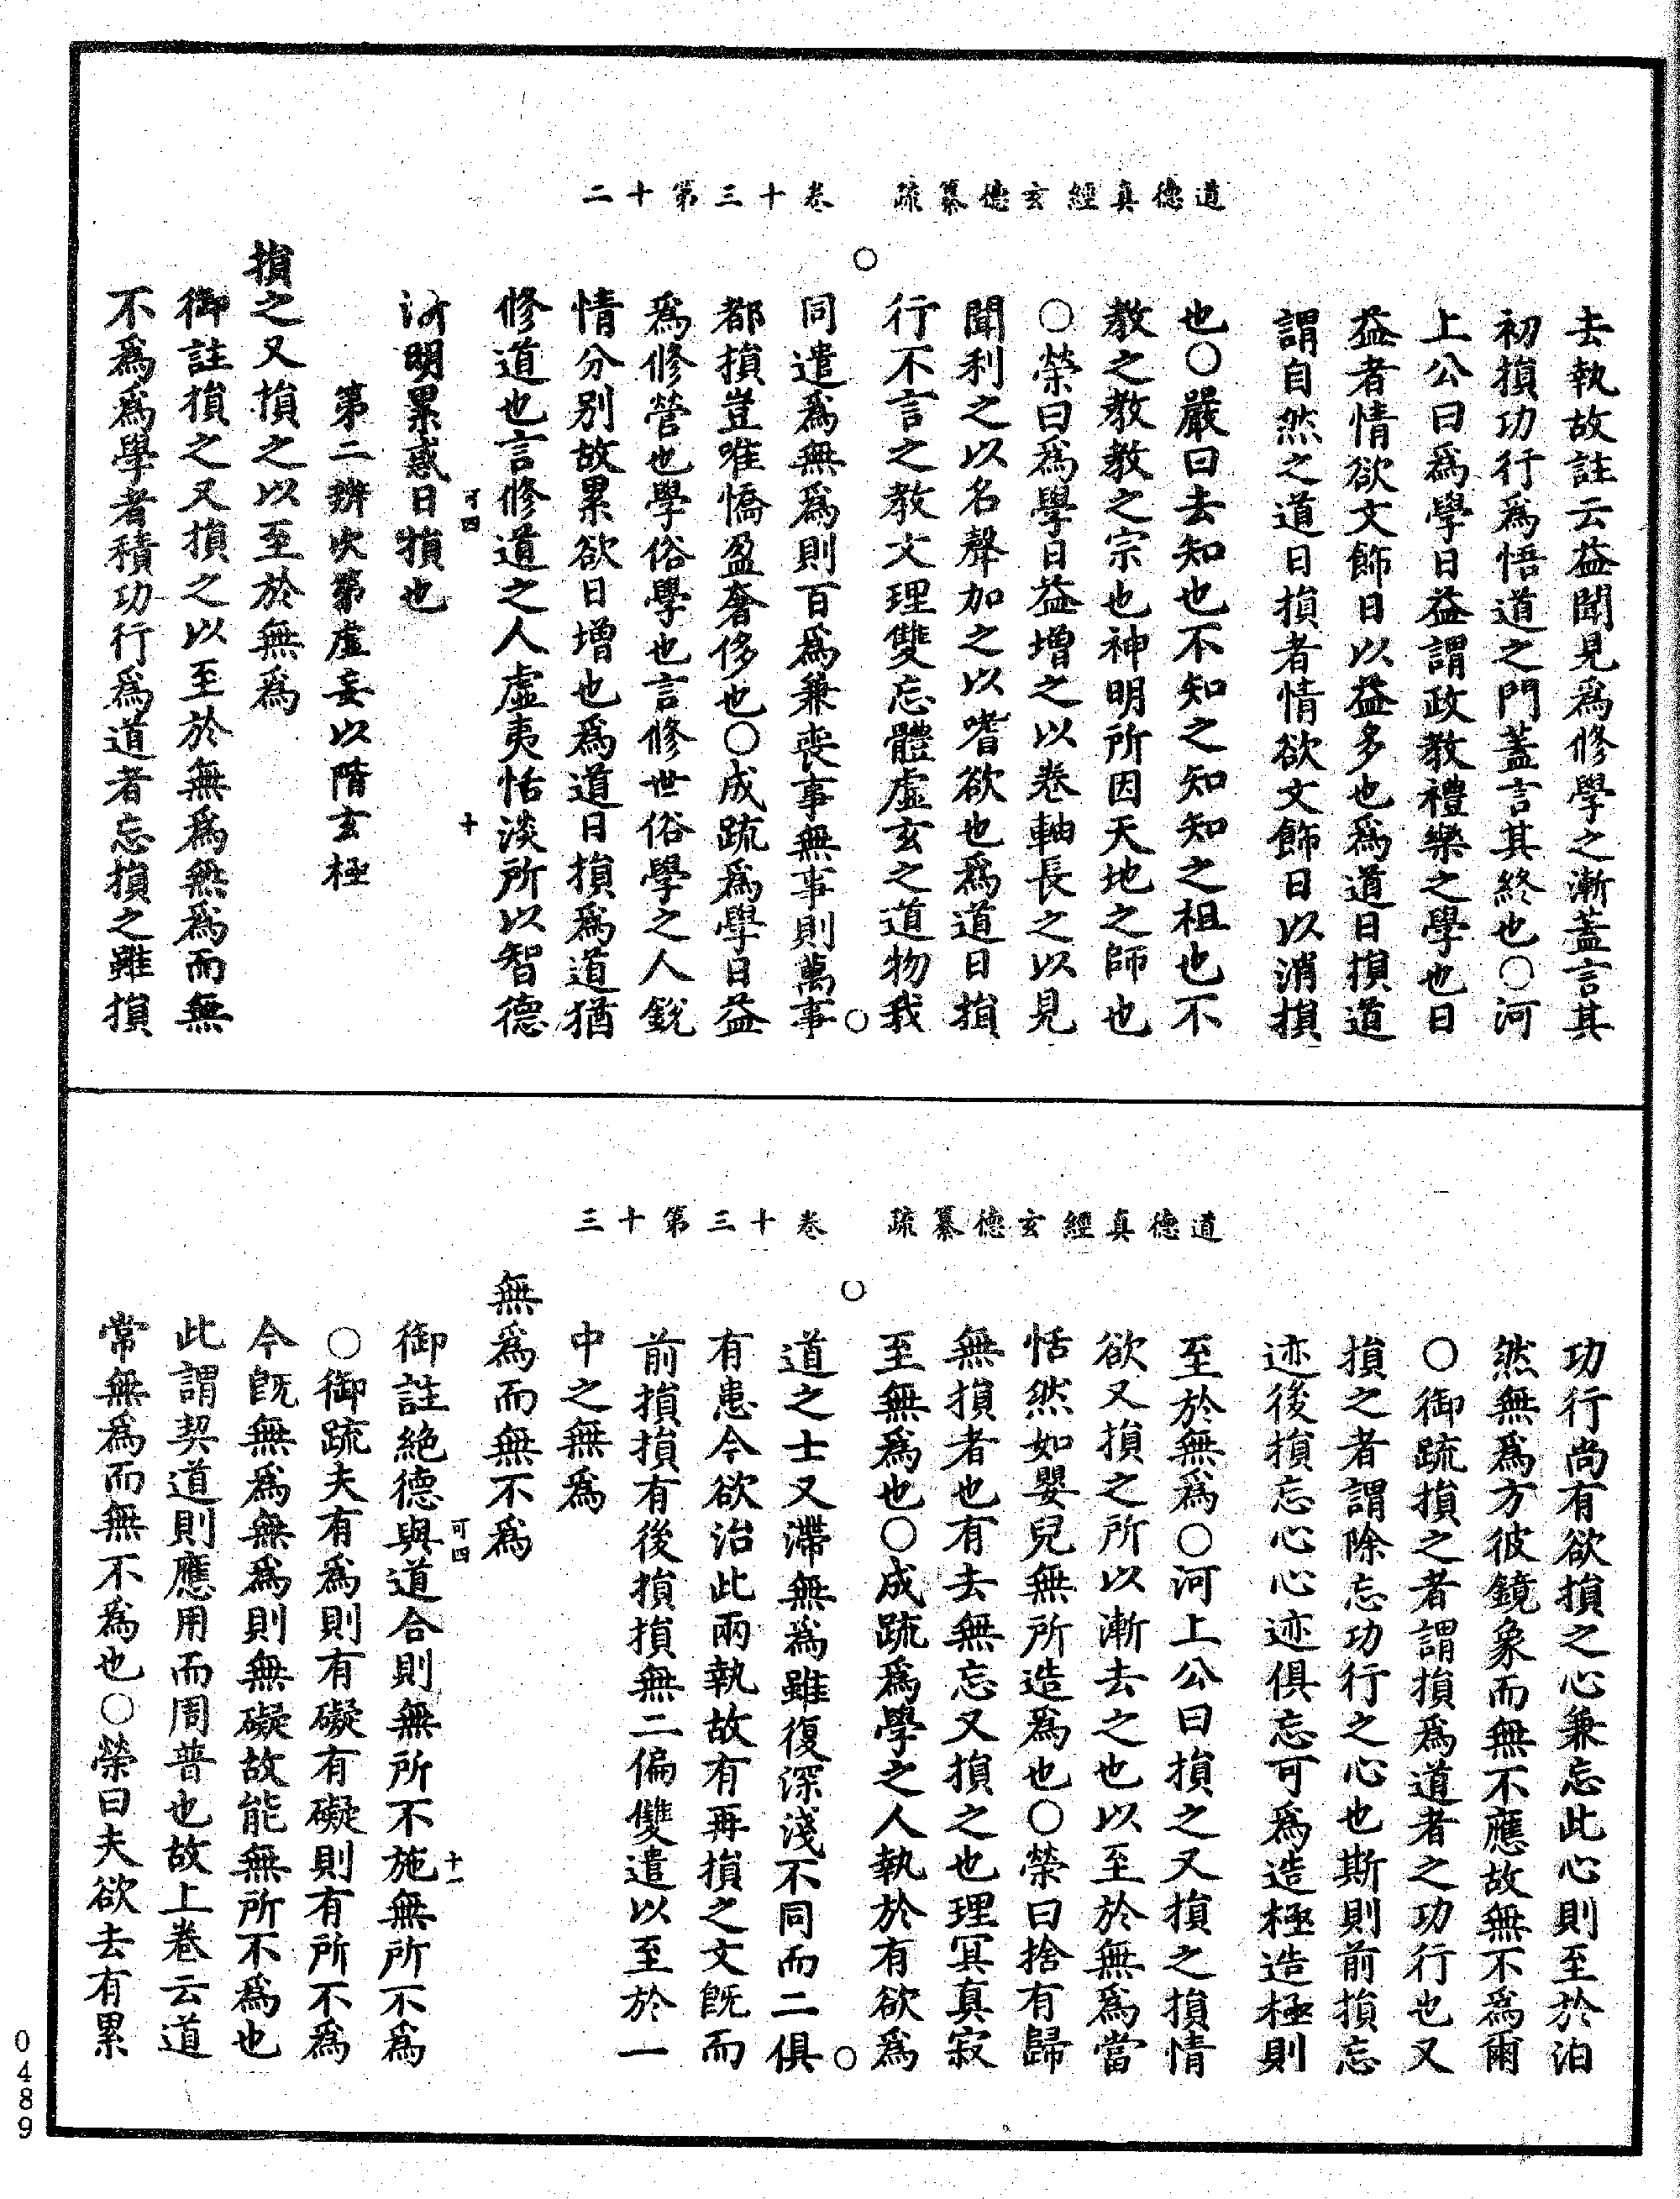 道德真經玄德纂疏　卷十三第十二
去執故註云益聞見為修學之漸蓋言其
初損功行為悟道之門蓋言其終也〇河
上公曰為學日益謂政教禮樂之學也日
益者情欲文飾日以益多也為道日損道
謂自然之道日損者情欲文飾日以消損
也〇嚴曰去知也不知之知知之祖也不
教之教教之宗也神明所因天地之師也
〇榮曰為學日益增之以卷軸長之以見
聞利之以名聲加之以嗜欲也為道日損
行不言之教文理雙忘體虛玄之道物我
同遣為無為則百為兼喪事無事則萬事
都損豈唯憍盈奢侈也〇成疏為學日益
為修營也學俗學也言修世俗學之人銳
情分別故累欲日增也為道日損為道猶
修道也言修道之人虛夷恬淡所以智德
可四
十
漸明累惑日損也
第二辨次第虛妄以階玄極
損之又損之以至於無為
御註損之又損之以至於無為無為而無
不為為學者積功行為道者忘損之雖損
道德真經玄德纂疏　卷十三第十三
功行尚有欲損之心兼忘此心則至於泊
然無為方彼鏡象而無不應故無不為爾
〇御疏損之者謂損為道者之功行也又
損之者謂除忘功行之心也斯則前損忘
迹後損忘心心迹俱忘可為造極造極則
至於無為〇河上公曰損之又損之損情
欲又損之所以漸去之也以至於無為當
恬然如嬰兒無所造為也〇榮曰捨有歸
無損者也有去無忘又損之也理冥真寂
至無為也〇成疏為學之人執於有欲為
道之士又滯無為雖復深淺不同而二俱
有患今欲治此兩執故有再損之文既而
前損損有後損損無二偏雙遣以至於一
中之無為
無為而無不為
可四
十一
御註絕德與道合則無所不施無所不為
〇御疏夫有為則有礙有礙則有所不為
今既無為無為則無礙故能無所不為也
此謂契道則應用而周普也故上卷云道
常無為而無不為也〇榮曰夫欲去有累
0489